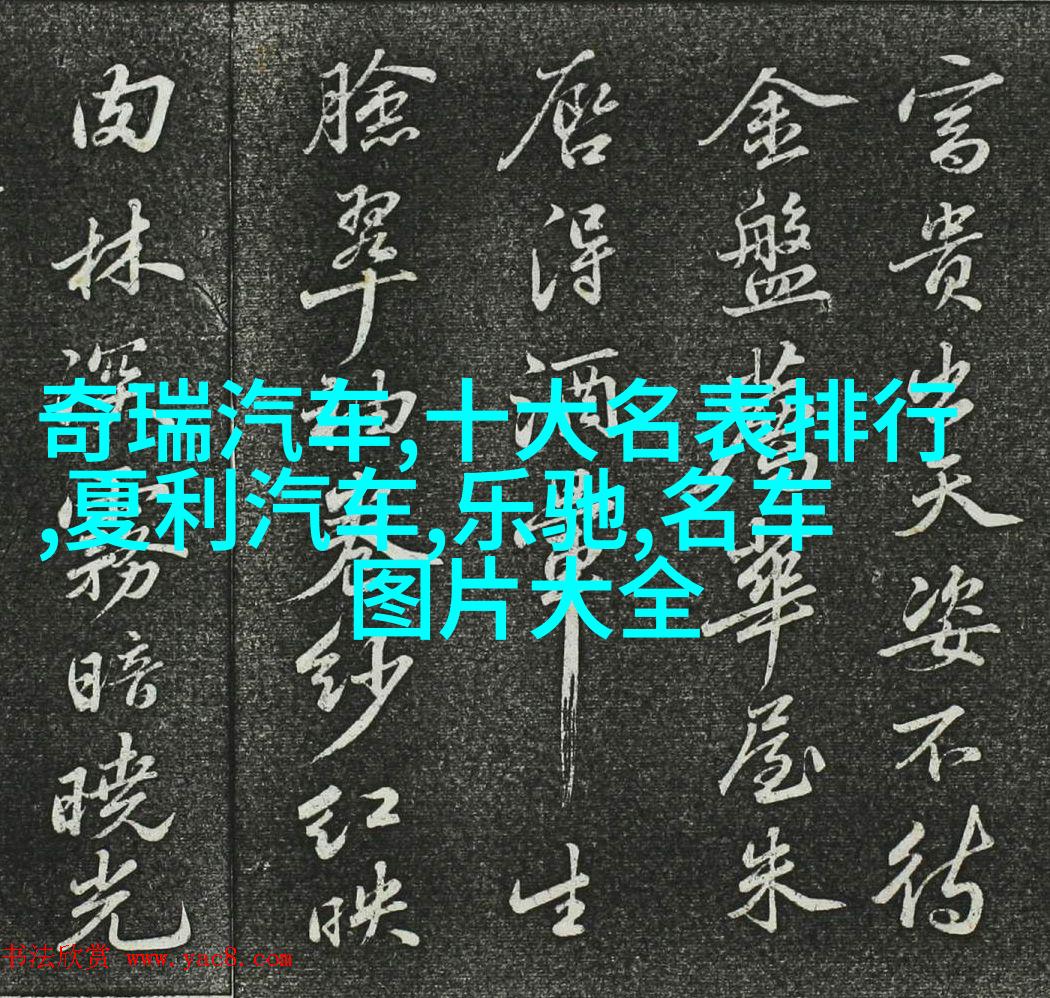 富貴出天姿不待
金盤薦華屋朱
唇得酒暈生
臉翠袖卷紗紅映
肉林深霧暗曉光
奇瑞汽车,十大名表排行
,夏利汽车,乐驰,名车
图片大全
书法欣赏 www.yac8.com